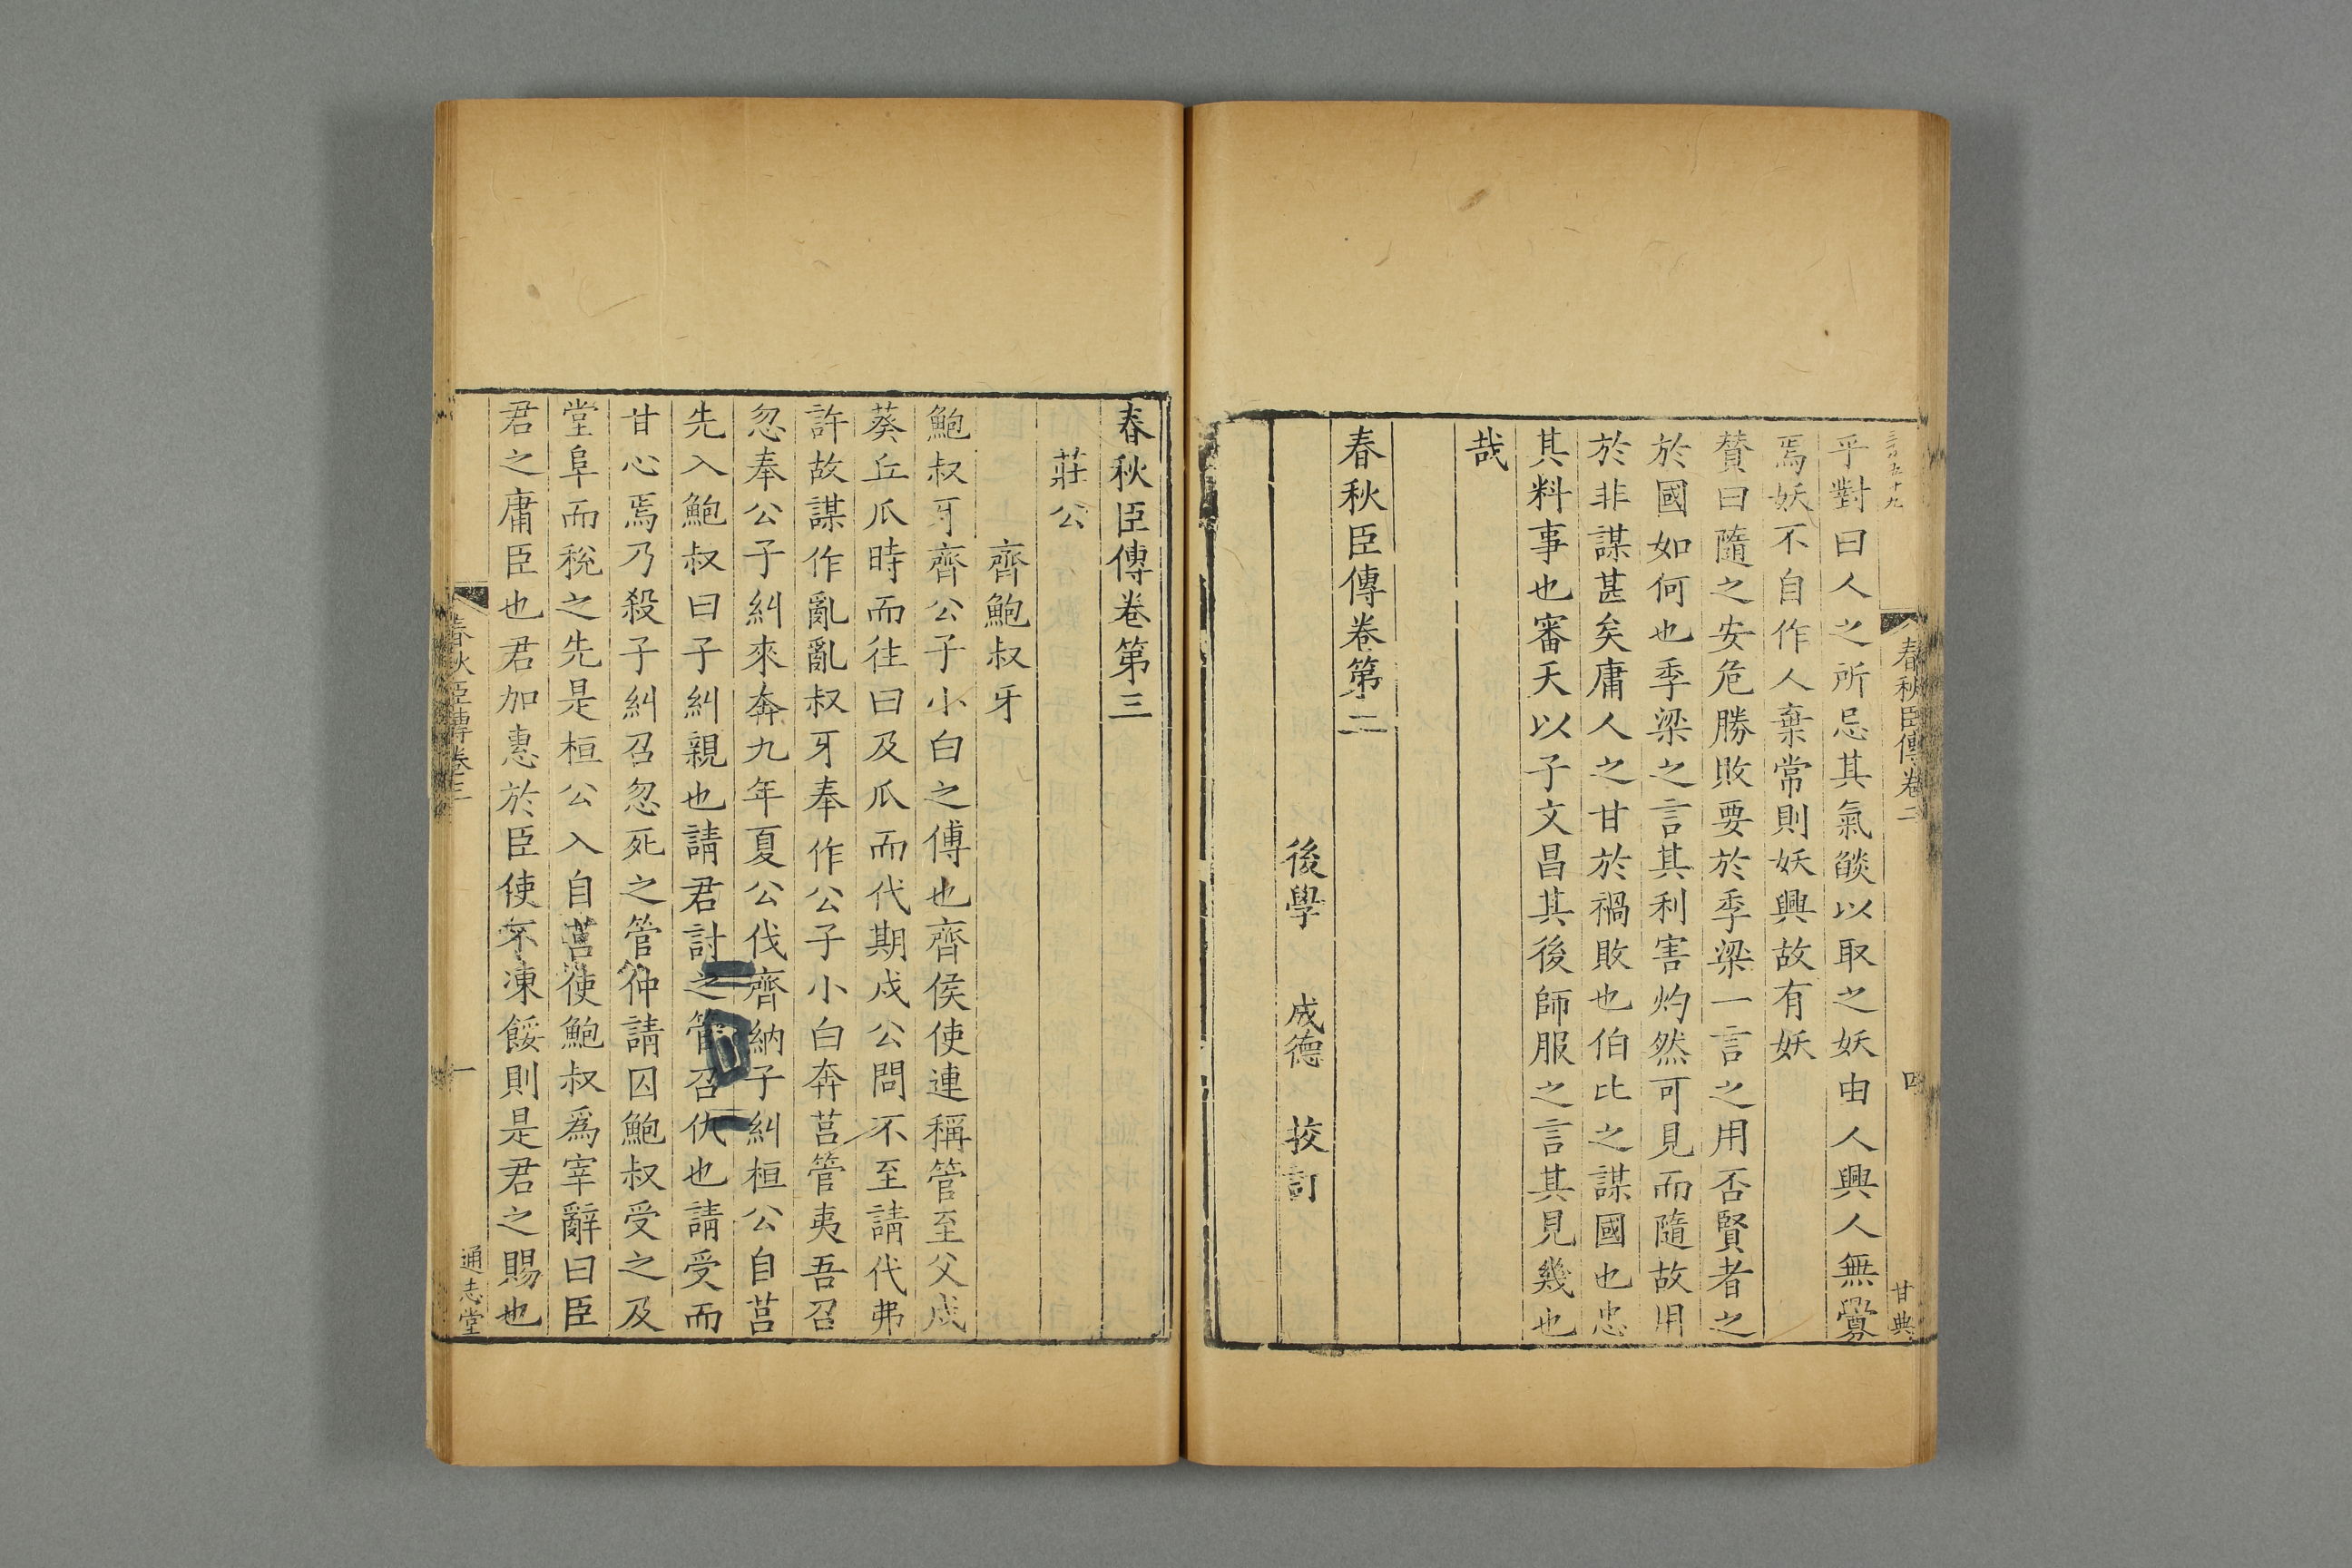 三百五十九
春秋臣傳卷二
四
甘典
乎對曰人之所忌其氣燄以取之妖由人興人無釁
焉妖不自作人棄常則妖興故有妖
贊曰隨之安危勝敗要於季梁一言之用否賢者之
於國如何也季梁之言其利害灼然可見而隨故用
於非謀甚矣庸人之甘於禍敗也伯比之謀國也忠
其料事也審天以子文昌其後師服之言其見幾也
哉
春秋臣傳卷第二
後學 成德 挍訂
春秋臣傳卷第三
莊公
齊鮑叔牙
鮑叔牙齊公子小白之傅也齊侯使連稱管至父戍
葵丘瓜時而往曰及瓜而代期戍公問不至請代弗
許故謀作亂亂叔牙奉作公子小白奔莒管夷吾召
忽奉公子糾來奔九年夏公伐齊納子糾桓公自莒
先入鮑叔曰子糾親也請君討之管召仇也請受而
甘心焉乃殺子糾召忽死之管仲請囚鮑叔受之及
堂阜而稅之先是桓公入自莒使鮑叔爲宰辭曰臣
君之庸臣也君加惠於臣使不凍餒則是君之賜也
春秋臣傳卷三
一
通志堂